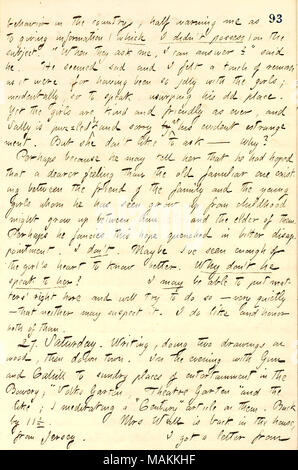 93
behavior in the country, half warning me as
to giving information (which I didn't possess) on the
subject. "When they ask me, I can answer!" said
he. He seemed sad and I felt a touch of remorse
as it were for having been so jolly with the girls;
incidentally so to speak, usurping his old place.
Yet the girls are kind and friendly as ever and
Sally is puzzled and sorry his evident estrange-
ment. But she don't like to ask — why?
Perhaps because he may tell her that he had hoped
that a dearer feeling than the old familiar one exist-
ing between the friend of the family and the young
girls whom he has seen grow up from childhood
might grow up between him and the elder of them.
Perhaps he fancies this hope quenched in bitter disap-
pointment. I don't. Maybe I've seen enough of
the girl's heart to know better. Why don't he
speak to her? I may be able to put mat-
ters right here and will try to do so — very quietly
— that neither may suspect it. I do like and honor
both of them.
27. Saturday. Writing, doing two drawings on
wood, then down town. In the evening with Gun
and Cahill to sundry places of entertainment in the
Bowery; "Volks Garten" "Theatre Garten" and the
like; I meditating a "Century" article on them. Back
by 11½. Mrs Wall is back in the house,
from Jersey. I got a letter from
alamy
Image ID: MAKKHF
www.alamy.com